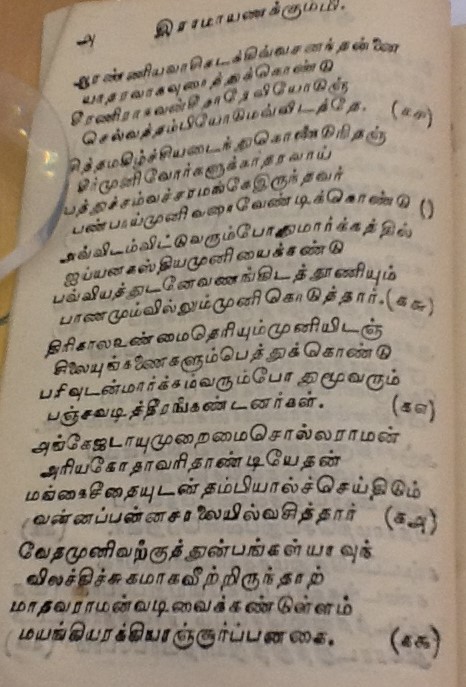 அ இராமாயணக்கும்மி.
ஆரண்ணியவாசெடக்கிவ்வசனந்தன்னை
யாதரவாகவுரைத்துக்கொண்டு
சீரணிராகவன்தோதேவியோடுஞ்
செல்வத்தம்பியோடுமவ்விடத்தே. (கரு)
சித்தமகிழ்ச்சியடைந்துகொண்டுநிதஞ்
சீர்முனிவோர்களுக்காதரவாய்
பத்துச்சம்வச்சரமங்கேஇருந்தவர்
பண்பாய்முனிவரைவேண்டிக்கொண்டு ()
அவ்விடம்விட்டுவரும்போதுமார்க்கத்தில்
ஐப்யனகஸ்தியமுனியைக்கண்டு
பவ்வியத்துடனேவணங்கிடத்தூணியும்
பாணமும்வில்லும்முனிகொடுத்தார். (கசு)
திரிகாலஉண்மைதெரியும்முனியிடஞ்
சிலையுங்கணைகளும்பெத்துக்கொண்டு
பரிவுடன்மார்க்கம்வரும்போதுமூவரும்
பஞ்சவடித்தீரங்கண்டனர்கள். (கஎ)
அங்கேஜடாயுமுறைமைசொல்லராமன்
அரியகோதாவரிதாண்டியேதன்
மங்கைசீதையுடன்தம்பியால்ச்செய்திடும்
வன்னப்பன்னசாலையில்வசித்தார் (கஅ)
வேதமுனிவற்குத்துன்பங்கள்யாவுந்
விலச்கிச்சுகமாகவீற்றிருந்தாற்
மாதவராமன்வடிவைக்கண்டுள்ளம்
மயங்கியரக்கியாஞ்சூர்ப்பனகை. (கக)